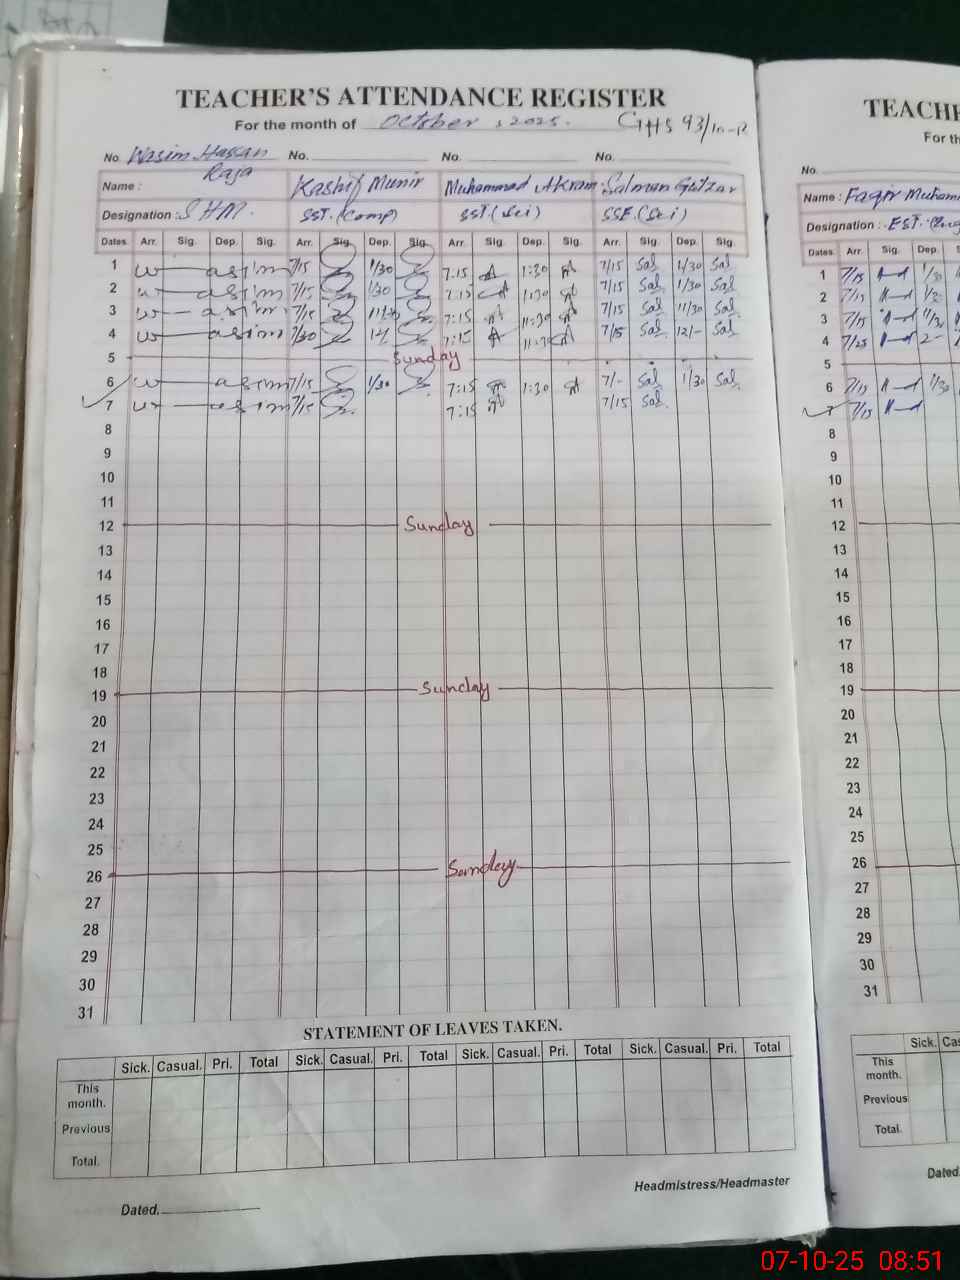 TEACHER'S ATTENDANCE REGISTER
For the month of October, 2025. GHS 93/10-R
No. Wasim Hassan Raja No. No. No.
Name : Kashif Munir Muhammad Akram Salman Gulzar
Designation : SHM. SST.(Comp) SST(Sci) SSE.(Sci)
Dates. Arr. Sig. Dep. Sig. Arr. Sig. Dep. Sig. Arr. Sig. Dep. Sig. Arr. Sig. Dep. Sig.
1 w asim 7/15 1/30 7:15 1:30 7/15 Sal 1/30 Sal
2 w asim 7/15 1/30 7:15 1:30 7/15 Sal 1/30 Sal
3 w asim 7/15 7:15 11:30 7/15 Sal 11/30 Sal
4 w asim 7/30 7:15 11:30 7/15 Sal 12/- Sal
5 Sunday
6 w asim 7/15 1/30 7:15 1:30 7/- Sal 1/30 Sal
7 w asim 7/15 7:15 7/15 Sal
8
9
10
11
12 Sunday
13
14
15
16
17
18
19 Sunday
20
21
22
23
24
25
26 Sunday
27
28
29
30
31
STATEMENT OF LEAVES TAKEN.
Sick. Casual. Pri. Total Sick. Casual. Pri. Total Sick. Casual. Pri. Total Sick. Casual. Pri. Total
This month.
Previous
Total.
Headmistress/Headmaster
Dated.
TEACHE
For th
No.
Name : Faqir Muham
Designation : EST.
Dates. Arr. Sig. Dep.
1 7/15 1/30
2 7/15 1/30
3 7/15 11/30
4 7/25
5
6 7/15 1/30
7 7/15
8
9
10
11
12
13
14
15
16
17
18
19
20
21
22
23
24
25
26
27
28
29
30
31
Sick. Cas
This month.
Previous
Total.
Dated.
07-10-25 08:51